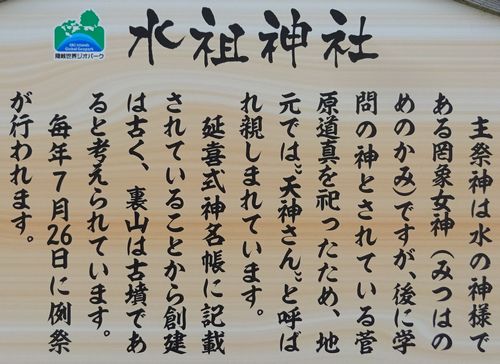 Oki Islands
Global Geopark
隠岐世界ジオパーク
水祖神社
主祭神は水の神様で
ある罔象女神（みつはの
めのかみ）ですが、後に学
問の神とされている菅
原道真を祀ったため、地
元では〝天神さん〟と呼ば
れ親しまれています。
延喜式神名帳に記載
されていることから創建
は古く、裏山は古墳であ
ると考えられています。
毎年7月26日に例祭
が行われます。